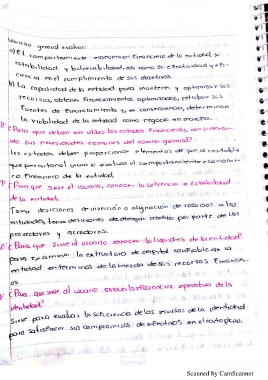 usuario general evaluar:
a) El comportamiento economico-financiero de la entidad, su
estabilidad y vulnerabilidad, así como su efectividad y efi-
ciencia en el cumplimiento de sus objetivos.
b) La capacidad de la entidad para mantener y optimizar sus
recursos, obtener financiamientos optimizados, retribuir sus
fuentes de financiamiento y, en consecuencia, determinar
la viabilidad de la entidad como negocio en marcha.
¿Para que deben ser utiles los estados financieros,
sus necesidades comunes del usuario general?
los estados deben proporcionar elementos de juicio confiable
que permitan al usuario evaluar el comportamiento economi-
co Financiero de la entidad.
¿Para que sirve al usuario, conocer la solvencia o estabilidad
de la entidad.
Toma decisiones de inversión o asignación de recursos a las
entidades, toma decisiones de otorgar credito por parte de los
proveedores y acreedores.
¿Para que sirve al usuario conocer la liquidez de la entidad?
para examinar la estructura de capital contable de la
entidad en terminos de la mezcla de sus recursos financier-
os.
¿Para que sirve al usuario la eficiencia operativa de la
entidad?
Sirve para evaluar la suficiencia de los recursos de la identidad
para satisfacer sus compromisos de efectivos en el corto plazo.
Scanned by CamScanner